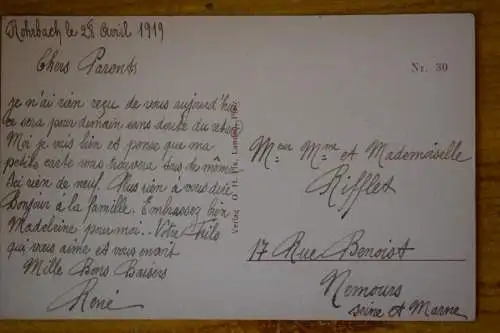 Rohrbach le 28 Avril 1919
Chers Parents
Nr. 30
Je n'ai rien reçu de vous aujourd'hui
ce sera pour demain sans doute du retard
Moi je vais bien et pense que ma
petite carte vous trouvera tous de même
Ici rien de neuf. Plus rien à vous dire
Bonjour à la famille. Embrassez bien
Madeleine pour moi. Votre Fils
qui vous aime et vous envoit
Mille Bons Baisers
René
Verlag O. H.
Meur Mme et Mademoiselle
Rifflet
17 Rue Benoist
Nemours
Seine et Marne